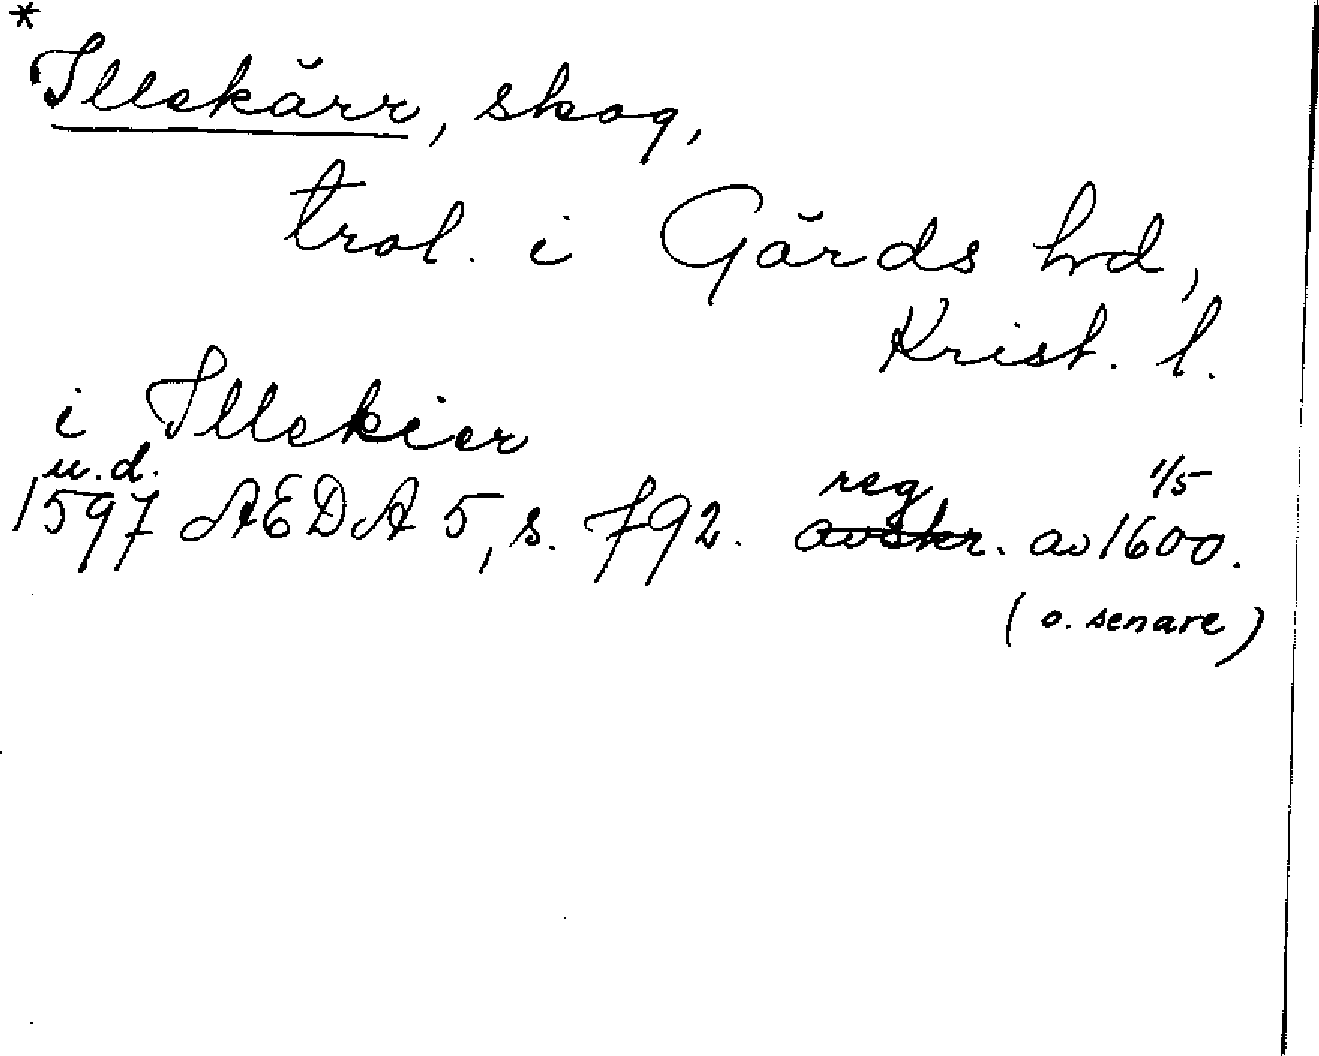 *
Illekärr, skog,
trol. i Gärds hrd,
Krist. l.
i Illekier
u.d. reg. 1/5
1597 AEDA 5, s. 792. avskr. av 1600.
(o. senare)